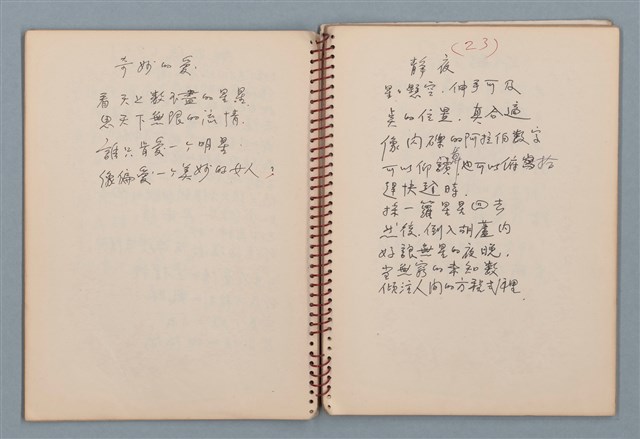 奇妙的愛
看天上數不盡的星星
思天下無限的注情
誰只肯愛一个明星
像偏愛一个美妙的女人？
(23)
靜夜
星星懸空，伸手可及
真的位置，真合適
像肉裸的阿拉伯數字
可以仰讀 也可以俯拾
趕快趁時
採一籮星星回去
然後，倒入胡蘆内
好讓無星的夜晚，
當無窮的未知數
傾注人間的方程式裡